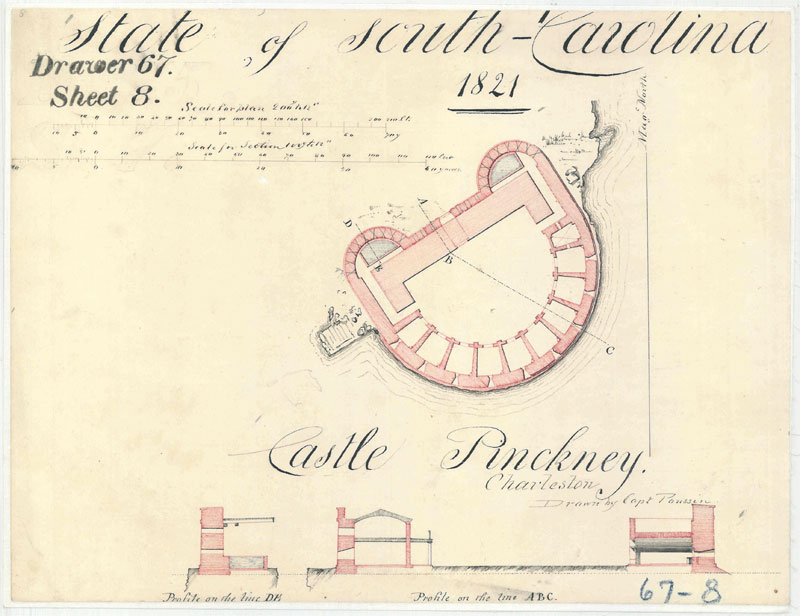 State of South-Carolina
Drawer 67.
Sheet 8.
1821
Scale for plan
Scale for Section
Mag. North
A
D
E
B
C
Castle Pinckney.
Charleston
Drawn by Capt Poussin
Profile on the line DE
Profile on the line ABC.
67-8